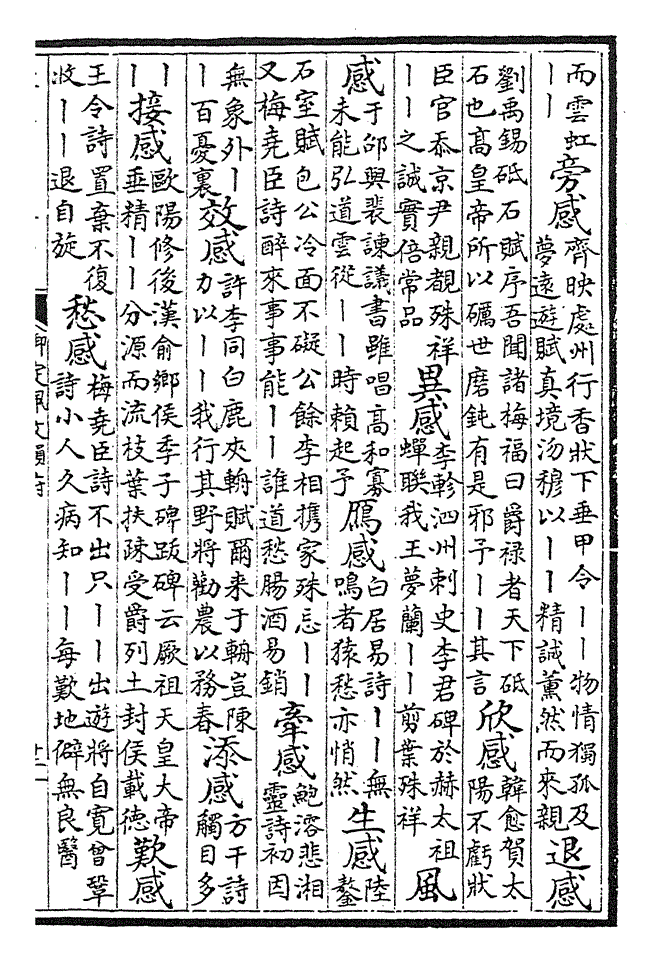 而雲虹丨丨旁感齊映處州行香狀下垂甲令丨丨物情獨孤及夢遠遊賦真境沕穆以丨丨精誠薰然而來親退感
劉禹錫砥石賦序吾聞諸梅福曰爵禄者天下砥石也高皇帝所以礪世磨鈍有是邪予丨丨其言欣感韓愈賀太陽不虧狀
臣官忝京尹親覩殊祥丨丨之誠實倍常品異感李軫泗州刺史李君碑於赫太祖蟬聯我王夢蘭丨丨剪葉殊祥風
感于邵與裴諫議書雖唱高和寡未能弘道雲從丨丨時賴起予鴈感白居易詩丨丨無鳴者猿愁亦悄然生感陸鼇
石室賦包公冷面不礙公餘李相携家殊忘丨丨又梅堯臣詩醉來事事能丨丨誰道愁腸酒易銷牽感鮑溶悲湘靈詩初因
無象外丨丨百憂裏效感許李同白鹿夾輈賦爾来于輈豈陳力以丨丨我行其野將勸農以務春添感方干詩觸目多
丨丨接感歐陽修後漢俞鄉侯季子碑跋碑云厥祖天皇大帝垂精丨丨分源而流枝葉扶疎受爵列土封侯載德歎感
王令詩置棄不復收丨丨退自旋愁感梅堯臣詩不出只丨丨出遊將自寛曾鞏詩小人久病知丨丨每歎地僻無良醫